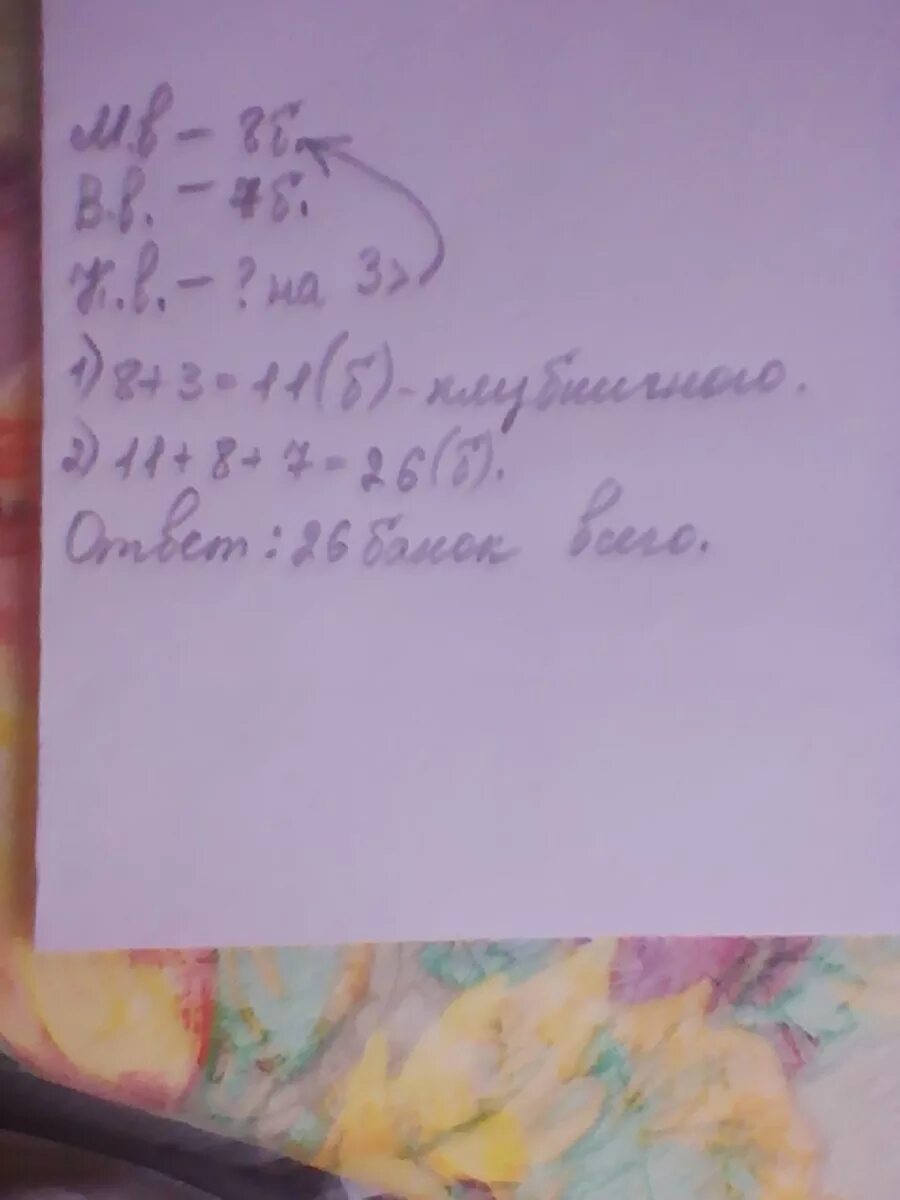 М.в – 8б.
В.в. – 7б.
К.в. – ? на 3>
1) 8+3=11(б)-клубничного.
2) 11+8+7=26(б).
Ответ: 26 банок всего.